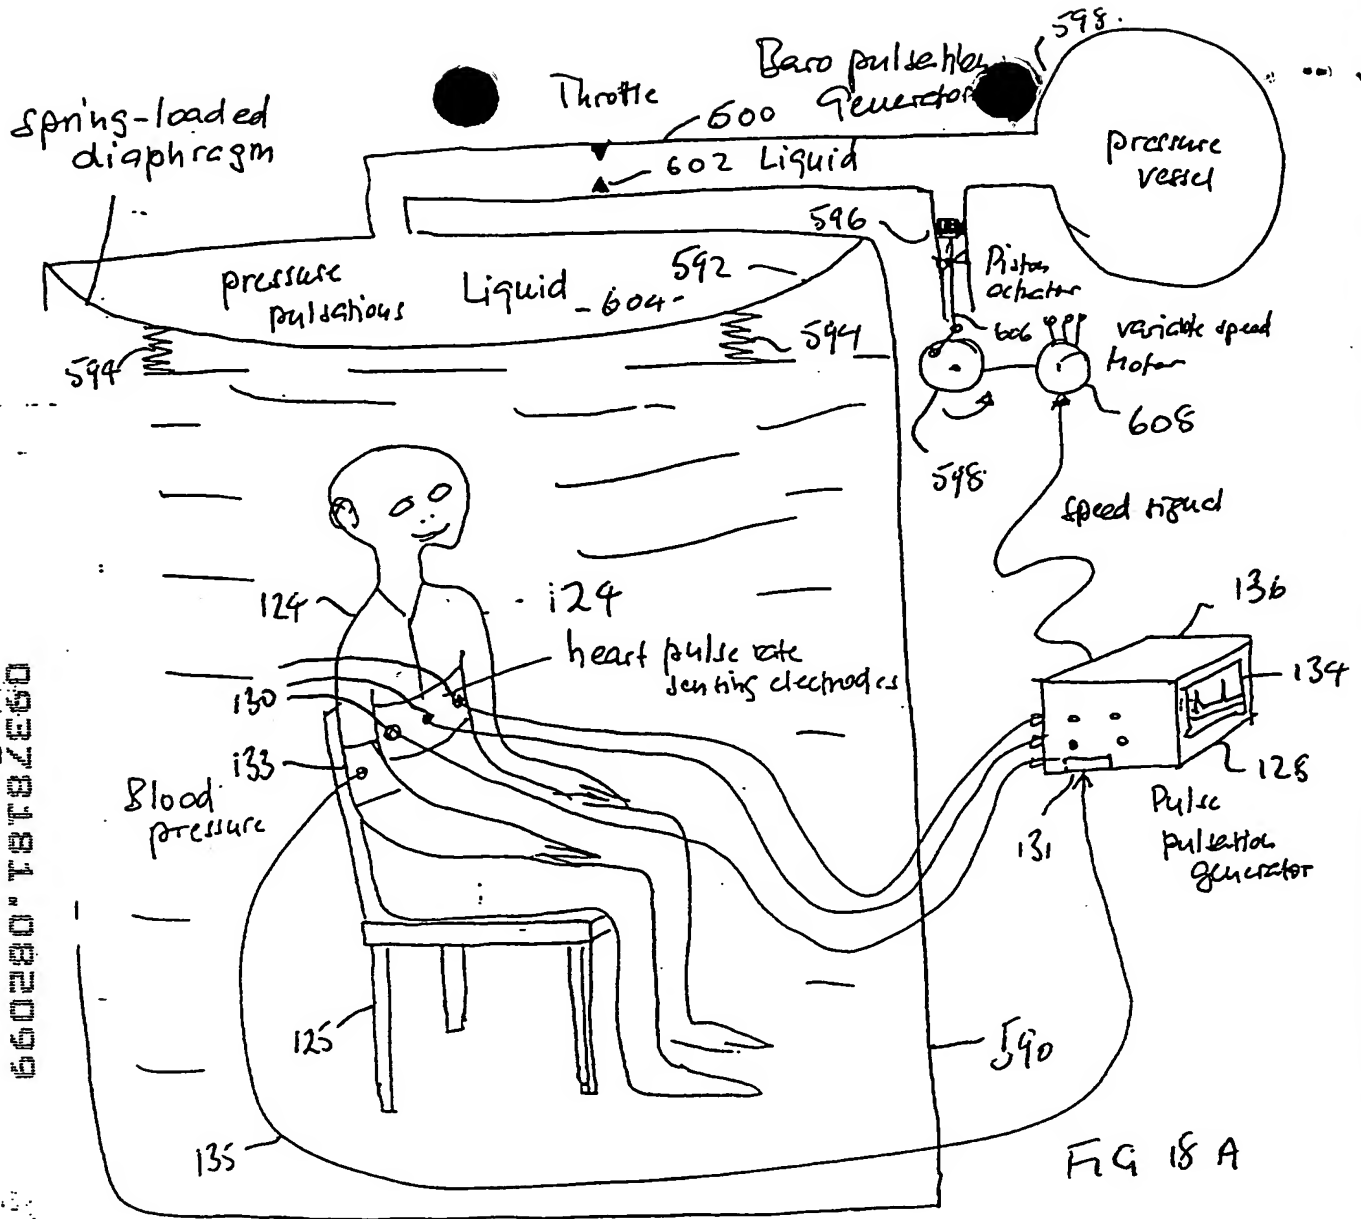 598.
Baro pulsation
Generator
Throttle
spring-loaded
diaphragm
600
602 Liquid
pressure
vessel
596
Piston
actuator
pressure
pulsations
Liquid
-604-
592
594
594
606
variable speed
Motor
608
598.
speed signal
124
124
136
134
heart pulse rate
sensing electrodes
130
133
Blood
pressure
128
131
Pulse
pulsation
generator
125
590
135
FIG 18 A
09378181.082099